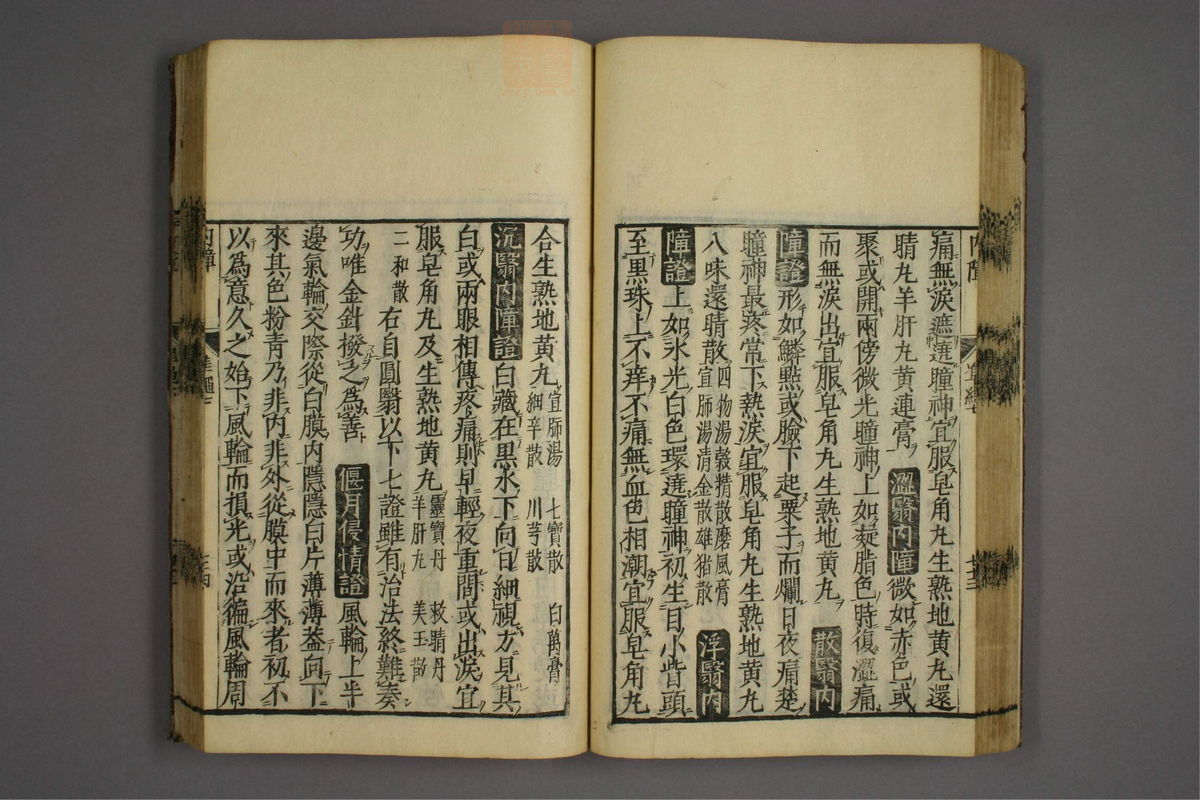 痛無淚遮遶瞳神宜服皂角丸生熟地黄丸還
睛丸羊肝丸黄連膏 澀翳内障 微如赤色或
聚或開兩傍微光瞳神上如凝脂色時復澀痛
而無淚出宜服皂角丸生熟地黄丸 散翳内
障證 形如鱗㸃或瞼下起粟子而爛日夜痛楚
瞳神最疼常下熱淚宜服皂角丸生熟地黄丸
八味還睛散 四物湯穀精散磨風膏
宜肺湯清金散雄猪散 浮翳内
障證 上如氷光白色環遶瞳神初生目小眥頭
至黒珠上不痒不痛無血色相潮宜服皂角丸
合生熟地黄丸 宜肺湯 七寶散 白萬膏
細辛散 川芎散
沉翳内障證 白藏在黒水下向日細視方見其
白或兩眼相傳疼痛則早輕夜重間或出淚宜
服皂角丸及生熟地黄丸 靈寶丹 救睛丹
羊肝丸 美玉散
二和散 右自圓翳以下七證雖有治法終難奏
功唯金針撥之為善 偃月侵睛證 風輪上半
邊氣輪交際從白膜内隱隱白片薄薄葢向下
來其色粉青乃非内非外從膜中而來者初不
以為意久之始下風輪而損光或沿徧風輪周
内障